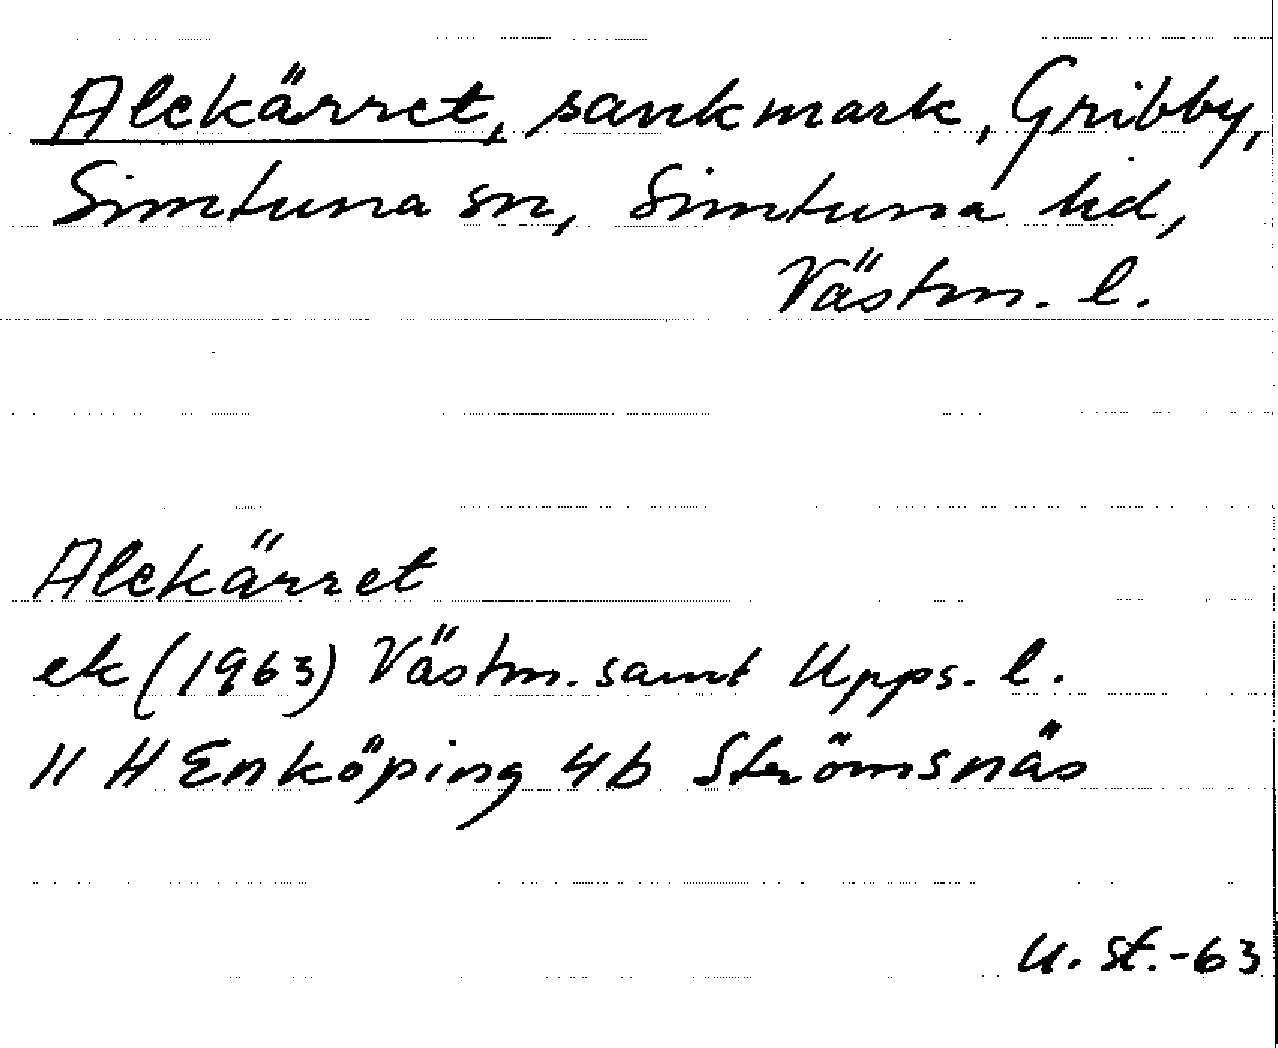 Alekärret, sankmark, Gribby,
Simtuna sn, Simtuna hd,
Västm. l.
Alekärret
ek (1963) Västm. samt Upps. l.
11 H Enköping 4b Strömsnäs
U. St.-63